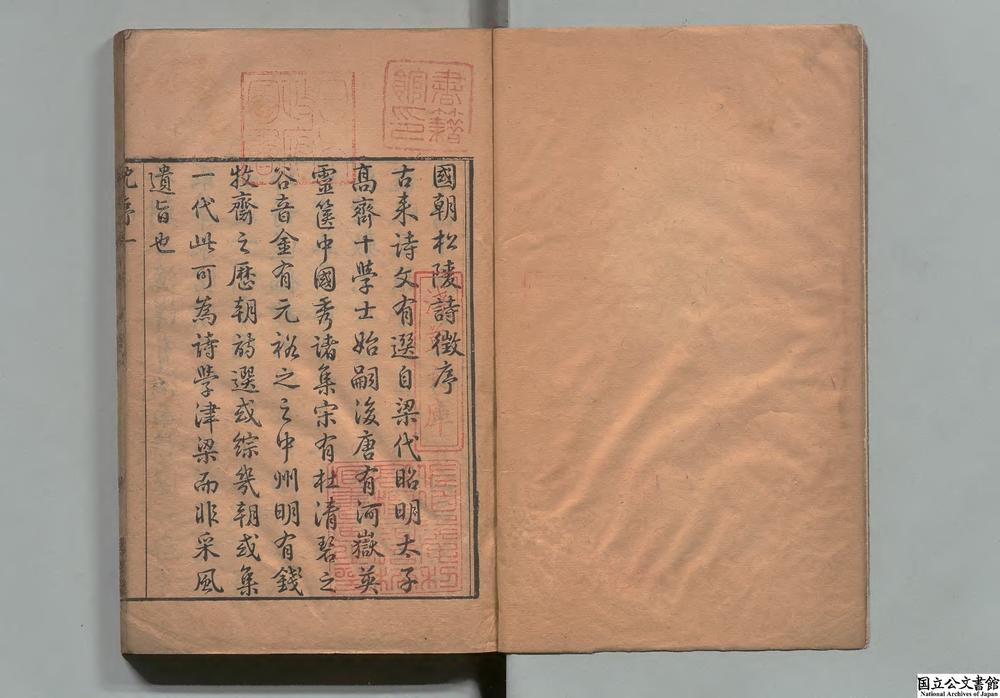 國朝松陵詩徵序
古来诗文有選自梁代昭明太子
髙齋十學士始嗣後唐有河嶽英
靈篋中國秀諸集宋有杜清碧之
谷音金有元裕之之中州明有錢
牧齋之歷朝詩選或綜幾朝或集
一代此可為诗學津梁而非采風
遺旨也
沈序一
書籍
館印
国立公文書館
National Archives of Japan